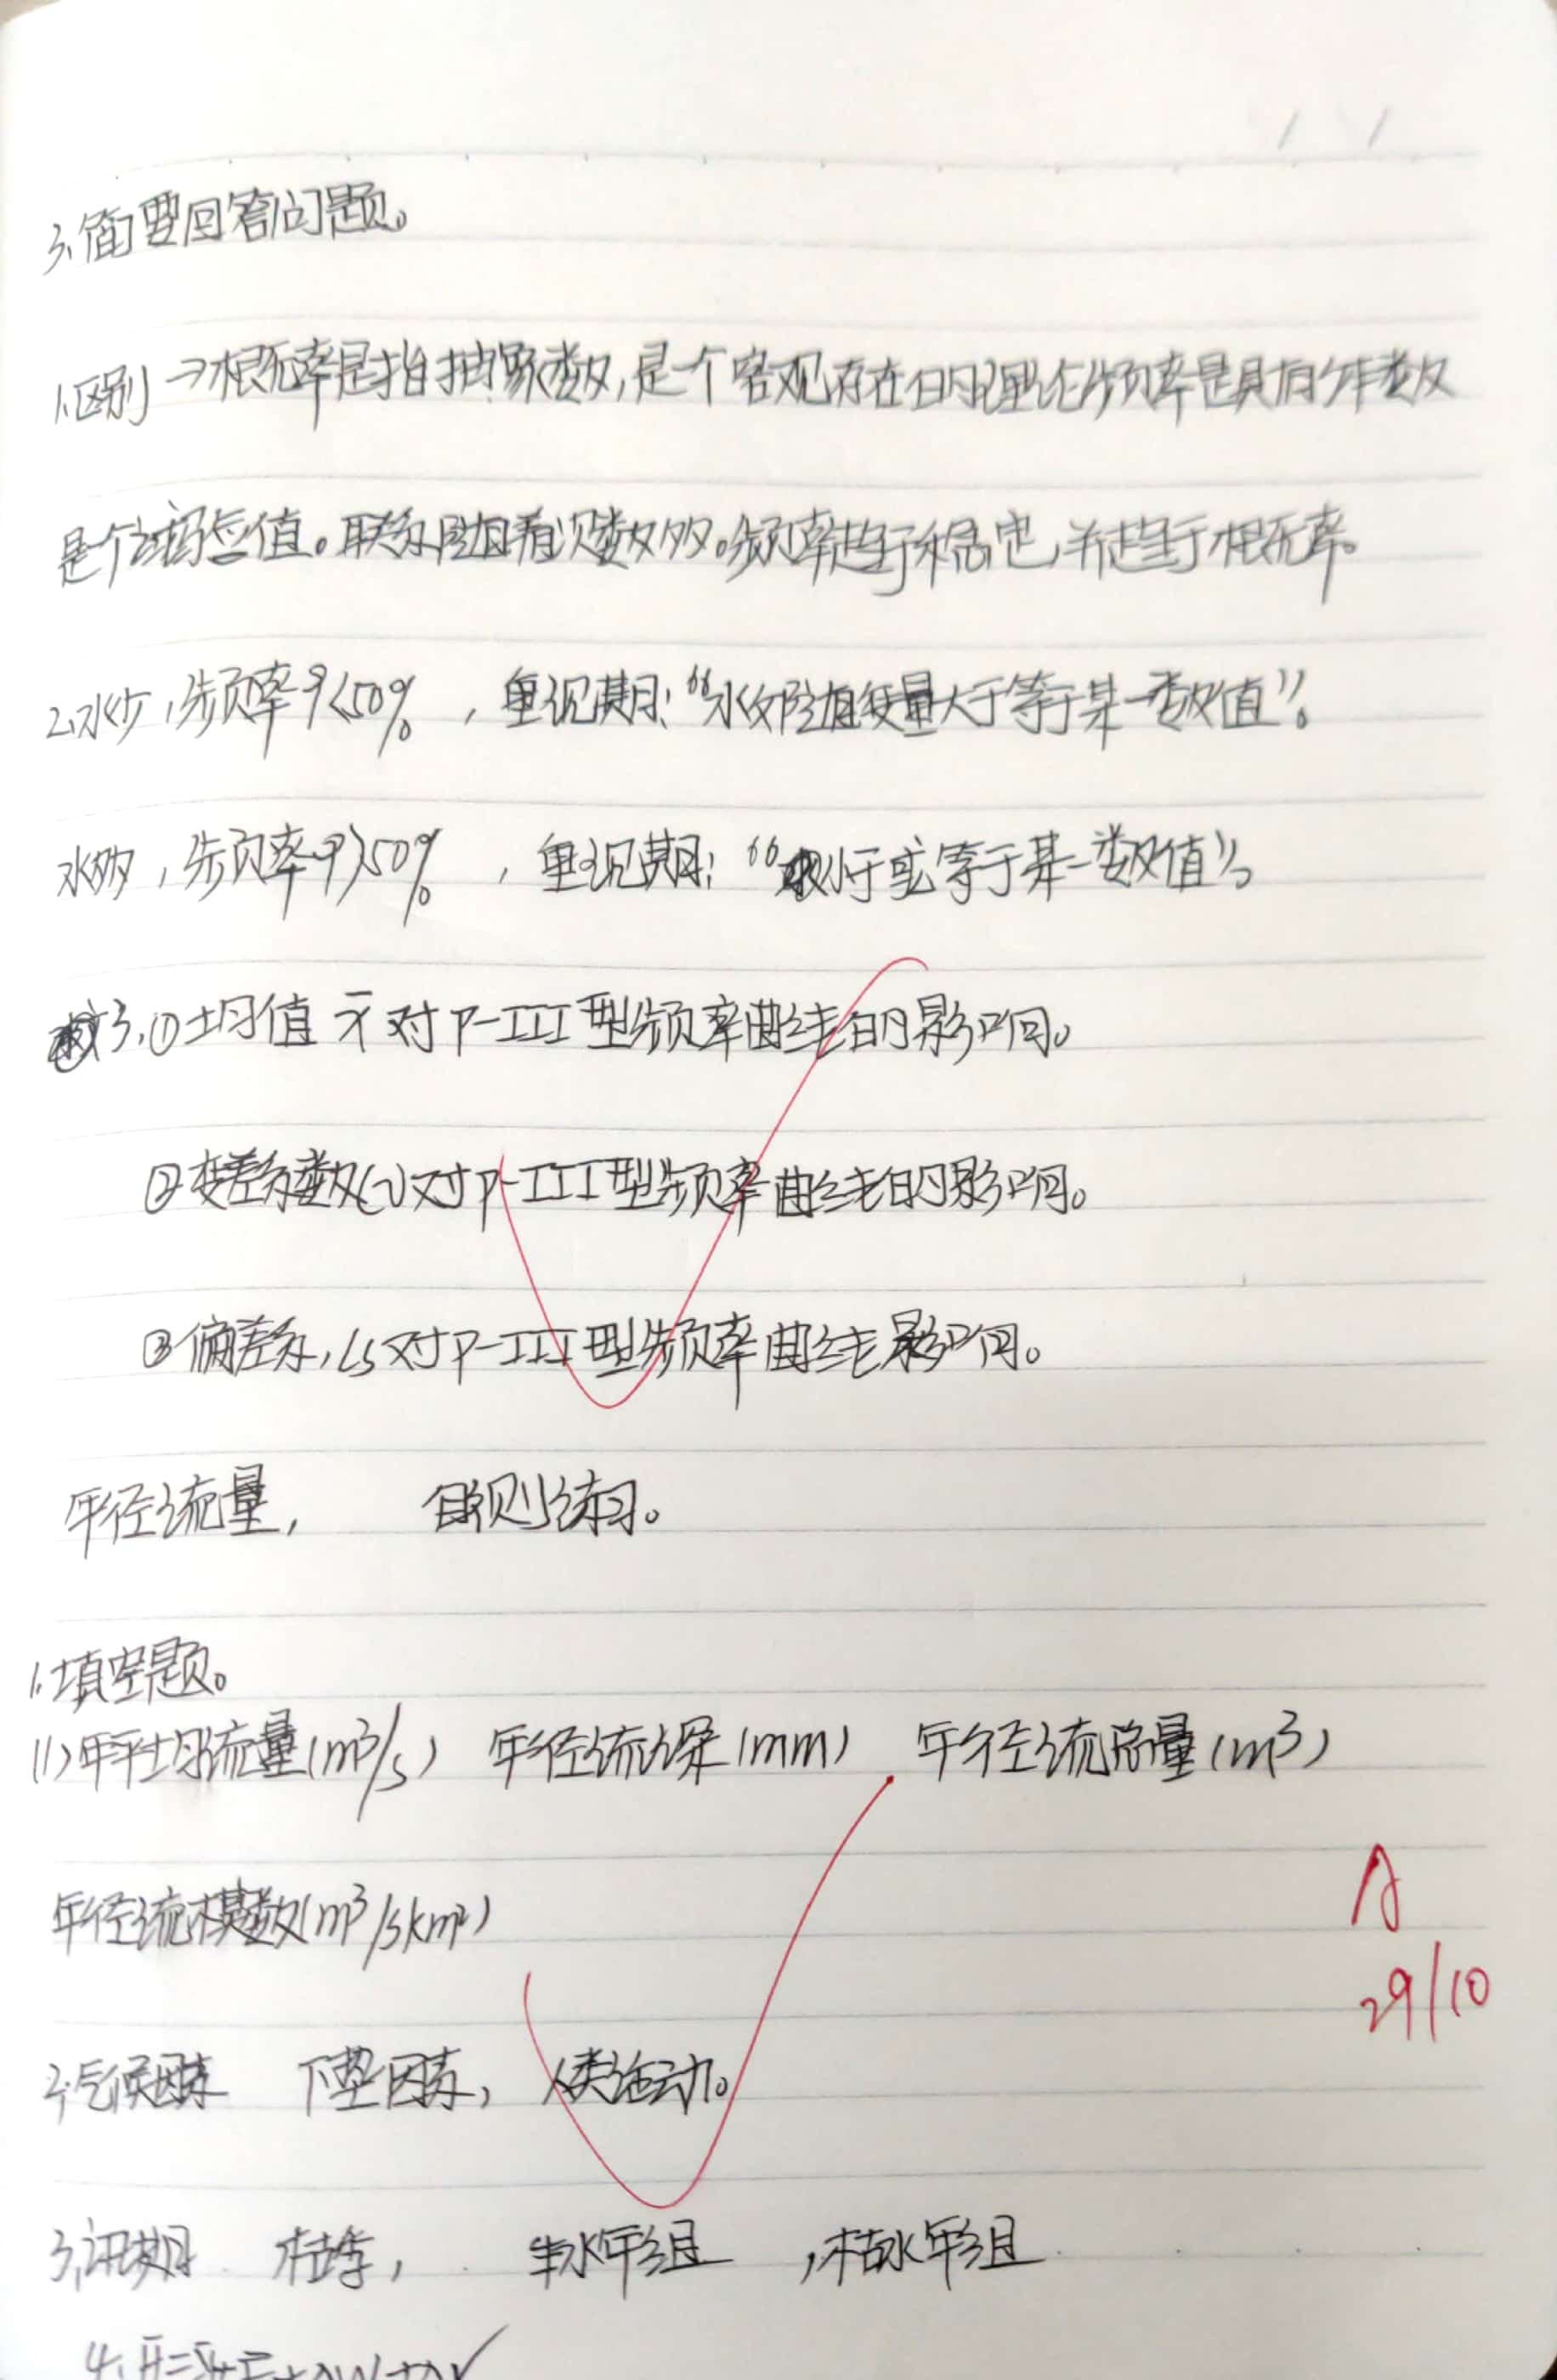 3.简要回答问题。
1.区别→概率是指抽象数,是个客观存在的理论,频率是具有年数
是个经验值。联系:随着次数多。频率趋于稳定,并趋于概率。
2.水少,频率P<50%,重现期:“水文随机变量大于等于某一数值”。
水多,频率P>50%,重现期:“小于或等于某一数值”。
3.①均值x̄对P-III型频率曲线的影响。
②变差系数Cv对P-III型频率曲线的影响。
③偏差系,Cs对P-III型频率曲线影响。
年径流量, 自测练习。
1.填空题。
(1)年平均流量(m³/s) 年径流深(mm) 年径流总量(m³)
年径流模数(m³/skm²)
A
29/10
2.气候因素 下垫因素, 人类活动。
3.汛期 枯季, 丰水年组,枯水年组
4.